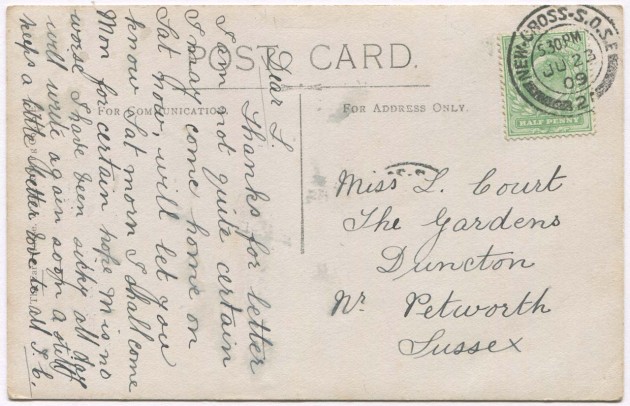 POST CARD.
FOR COMMUNICATION.
FOR ADDRESS ONLY.
NEW-CROSS-S.O.S.E
5.30 PM
JU 23
09
2
HALF PENNY
Dear L.
Thanks for letter
I am not quite certain
I may come home on
Sat now, will let you
know Sat morn I shall come
Mon for certain hope M is no
worse I have been sicky all day
will write again soon a still
keeps a little better love to all
Miss L. Court
The Gardens
Duncton
Nr Petworth
Sussex